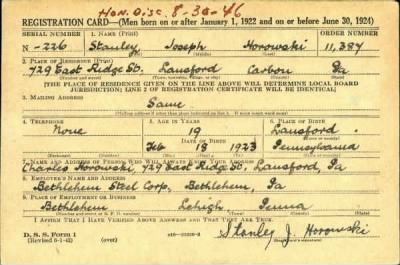 Hon. Disc. 8-30-46
REGISTRATION CARD—(Men born on or after January 1, 1922 and on or before June 30, 1924)
SERIAL NUMBER 1. NAME (Print) ORDER NUMBER
N-226 Stanley Joseph Horowski 11,387
2. PLACE OF RESIDENCE (Print)
429 East Ridge St. Lansford Carbon Pa
[THE PLACE OF RESIDENCE GIVEN ON THE LINE ABOVE WILL DETERMINE LOCAL BOARD
JURISDICTION; LINE 2 OF REGISTRATION CERTIFICATE WILL BE IDENTICAL]
3. MAILING ADDRESS
Same
[Mailing address if other than place indicated on line 2. If same insert word same]
4. TELEPHONE 5. AGE IN YEARS 6. PLACE OF BIRTH
None 19 Lansford
DATE OF BIRTH
Feb 18 1923 Pennsylvania
7. NAME AND ADDRESS OF PERSON WHO WILL ALWAYS KNOW YOUR ADDRESS
Charles Horowski, 429 East Ridge St., Lansford, Pa
8. EMPLOYER'S NAME AND ADDRESS
Bethlehem Steel Corp., Bethlehem, Pa
9. PLACE OF EMPLOYMENT OR BUSINESS
Bethlehem Lehigh Penna
I AFFIRM THAT I HAVE VERIFIED ABOVE ANSWERS AND THAT THEY ARE TRUE.
D. S. S. Form 1
(Revised 6-1-42) (over)
Stanley J. Horowski